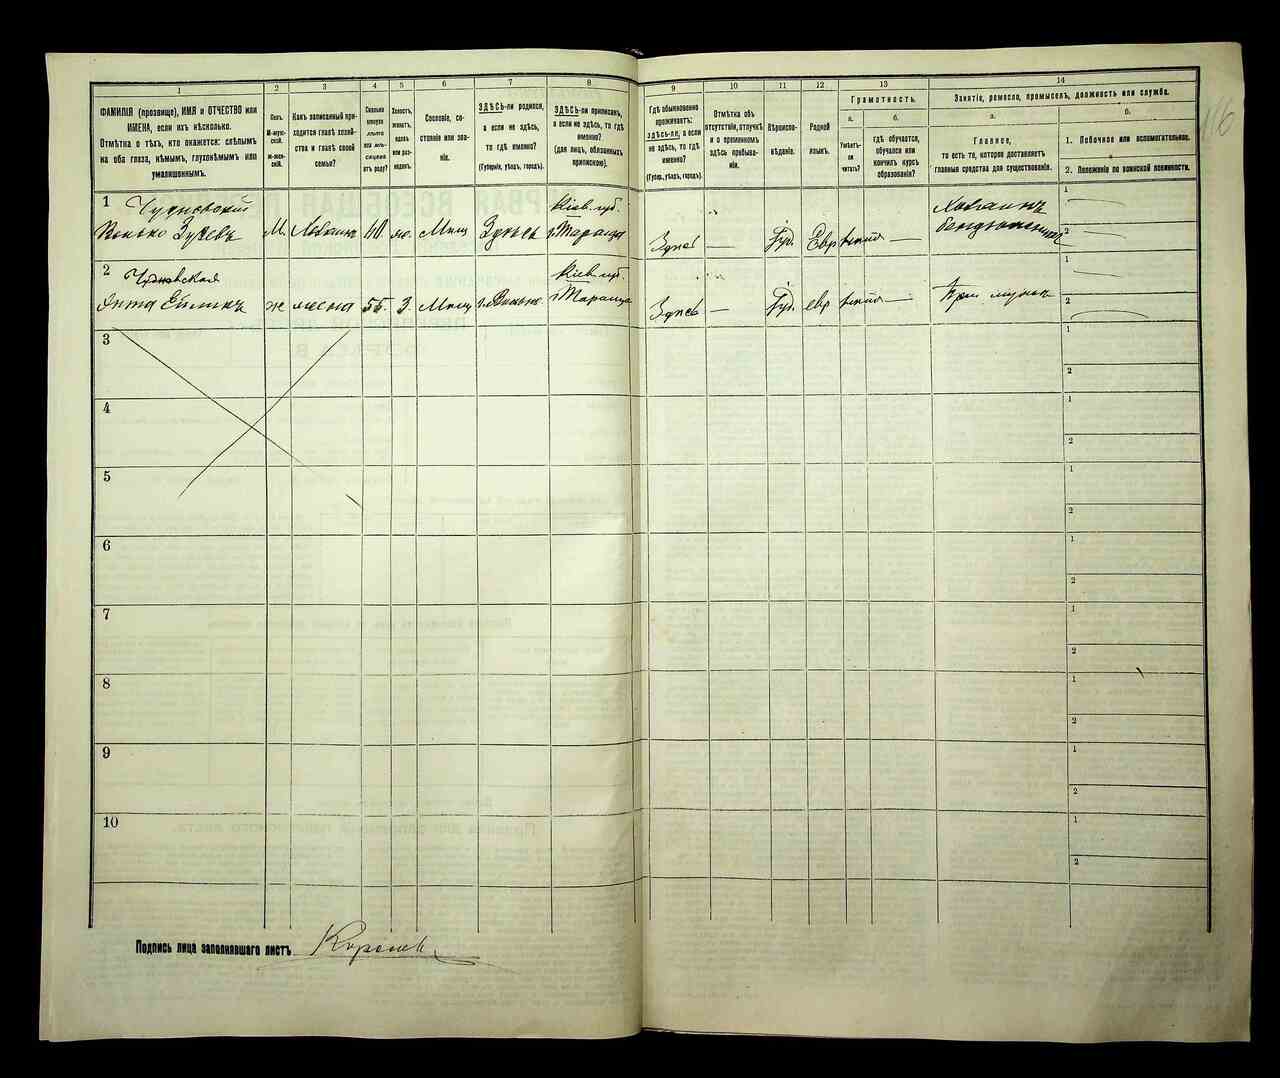 116
1
2
3
4
5
6
7
8
9
10
11
12
13
14
ФАМИЛІЯ (прозвище), ИМЯ и ОТЧЕСТВО или
ИМЕНА, если ихъ нѣсколько.
Отмѣтка о тѣхъ, кто окажется: слѣпымъ
на оба глаза, нѣмымъ, глухонѣмымъ или
умалишоннымъ.
Полъ.
М-муж-
ской.
Ж-жен-
скій.
Какъ записанный при-
ходится главѣ хозяй-
ства и главѣ своей
семьи?
Сколько
минуло
лѣтъ
или мѣ-
сяцевъ
отъ роду?
Холостъ,
женатъ,
вдовъ
или раз-
веденъ.
Сословіе, со-
стояніе или зва-
ніе.
ЗДѢСЬ-ли родился,
а если не здѣсь,
то гдѣ именно?
(Губернія, уѣздъ, городъ).
ЗДѢСЬ-ли приписанъ,
а если не здѣсь, то гдѣ
именно?
(для лицъ, обязанныхъ
припискою).
Гдѣ обыкновенно
проживаетъ:
здѣсь-ли, а если
не здѣсь, то гдѣ
именно?
(Губер., уѣздъ, городъ).
Отмѣтка объ
отсутствіи, отлучкѣ
и о временномъ
здѣсь пребыва-
ніи.
Вѣроиспо-
вѣданіе.
Родной
языкъ.
Грамотность.
а.
б.
Умѣетъ-
ли
читать?
гдѣ обучается,
обучался или
кончилъ курсъ
образованія?
Занятіе, ремесло, промыселъ, должность или служба.
а.
б.
Главное,
то есть то, которое доставляетъ
главныя средства для существованія.
1. Побочное или вспомогательное.
2. Положеніе по воинской повинности.
1
Чудновскій
Зусевъ М. Хозяинъ 60 Мѣщ Здѣсь
Кіев. губ.
г. Тараща
Здѣсь — Іуд. Евр —
Хозяинъ
1
2
2
Чудновская
ж жена 55 З. Мѣщ
Кіев. губ.
г. Тараща
Здѣсь — Іуд. евр —
При мужѣ
1
2
3
1
2
4
1
2
5
1
2
6
1
2
7
1
2
8
1
2
9
1
2
10
1
2
Подпись лица заполнявшаго листъ